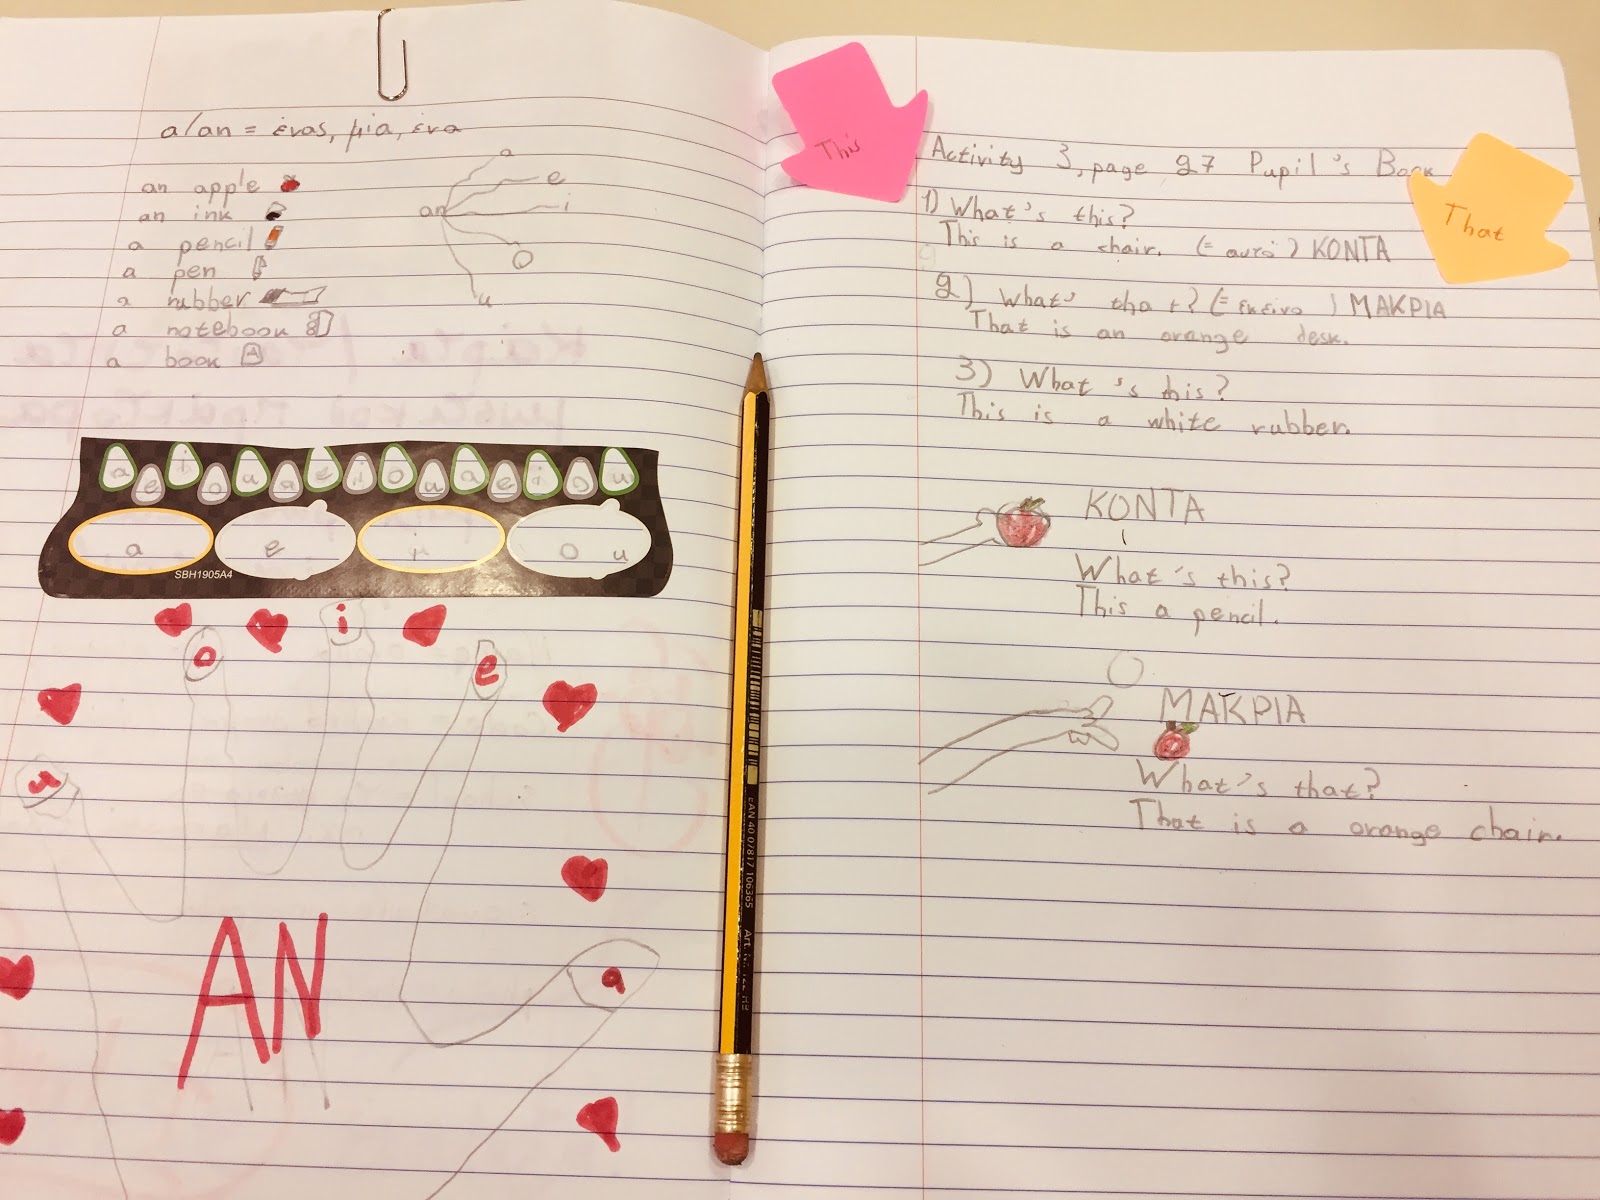 a/an = ένας, μία, ένα
an apple
an ink
a pencil
a pen
a rubber
a notebook
a book
an
a
e
i
o
u
a e i o u a e i o u a e i o u
a e i o u
SBH1905A4
u o i e a
AN
EAN 40 07817 106365
This
That
Activity 3, page 27 Pupil's Book
1) What's this?
This is a chair. (= αυτό) ΚΟΝΤΑ
2) What's that? (= εκείνο) ΜΑΚΡΙΑ
That is an orange desk.
3) What's this?
This is a white rubber.
ΚΟΝΤΑ
What's this?
This a pencil.
ΜΑΚΡΙΑ
What's that?
That is a orange chair.